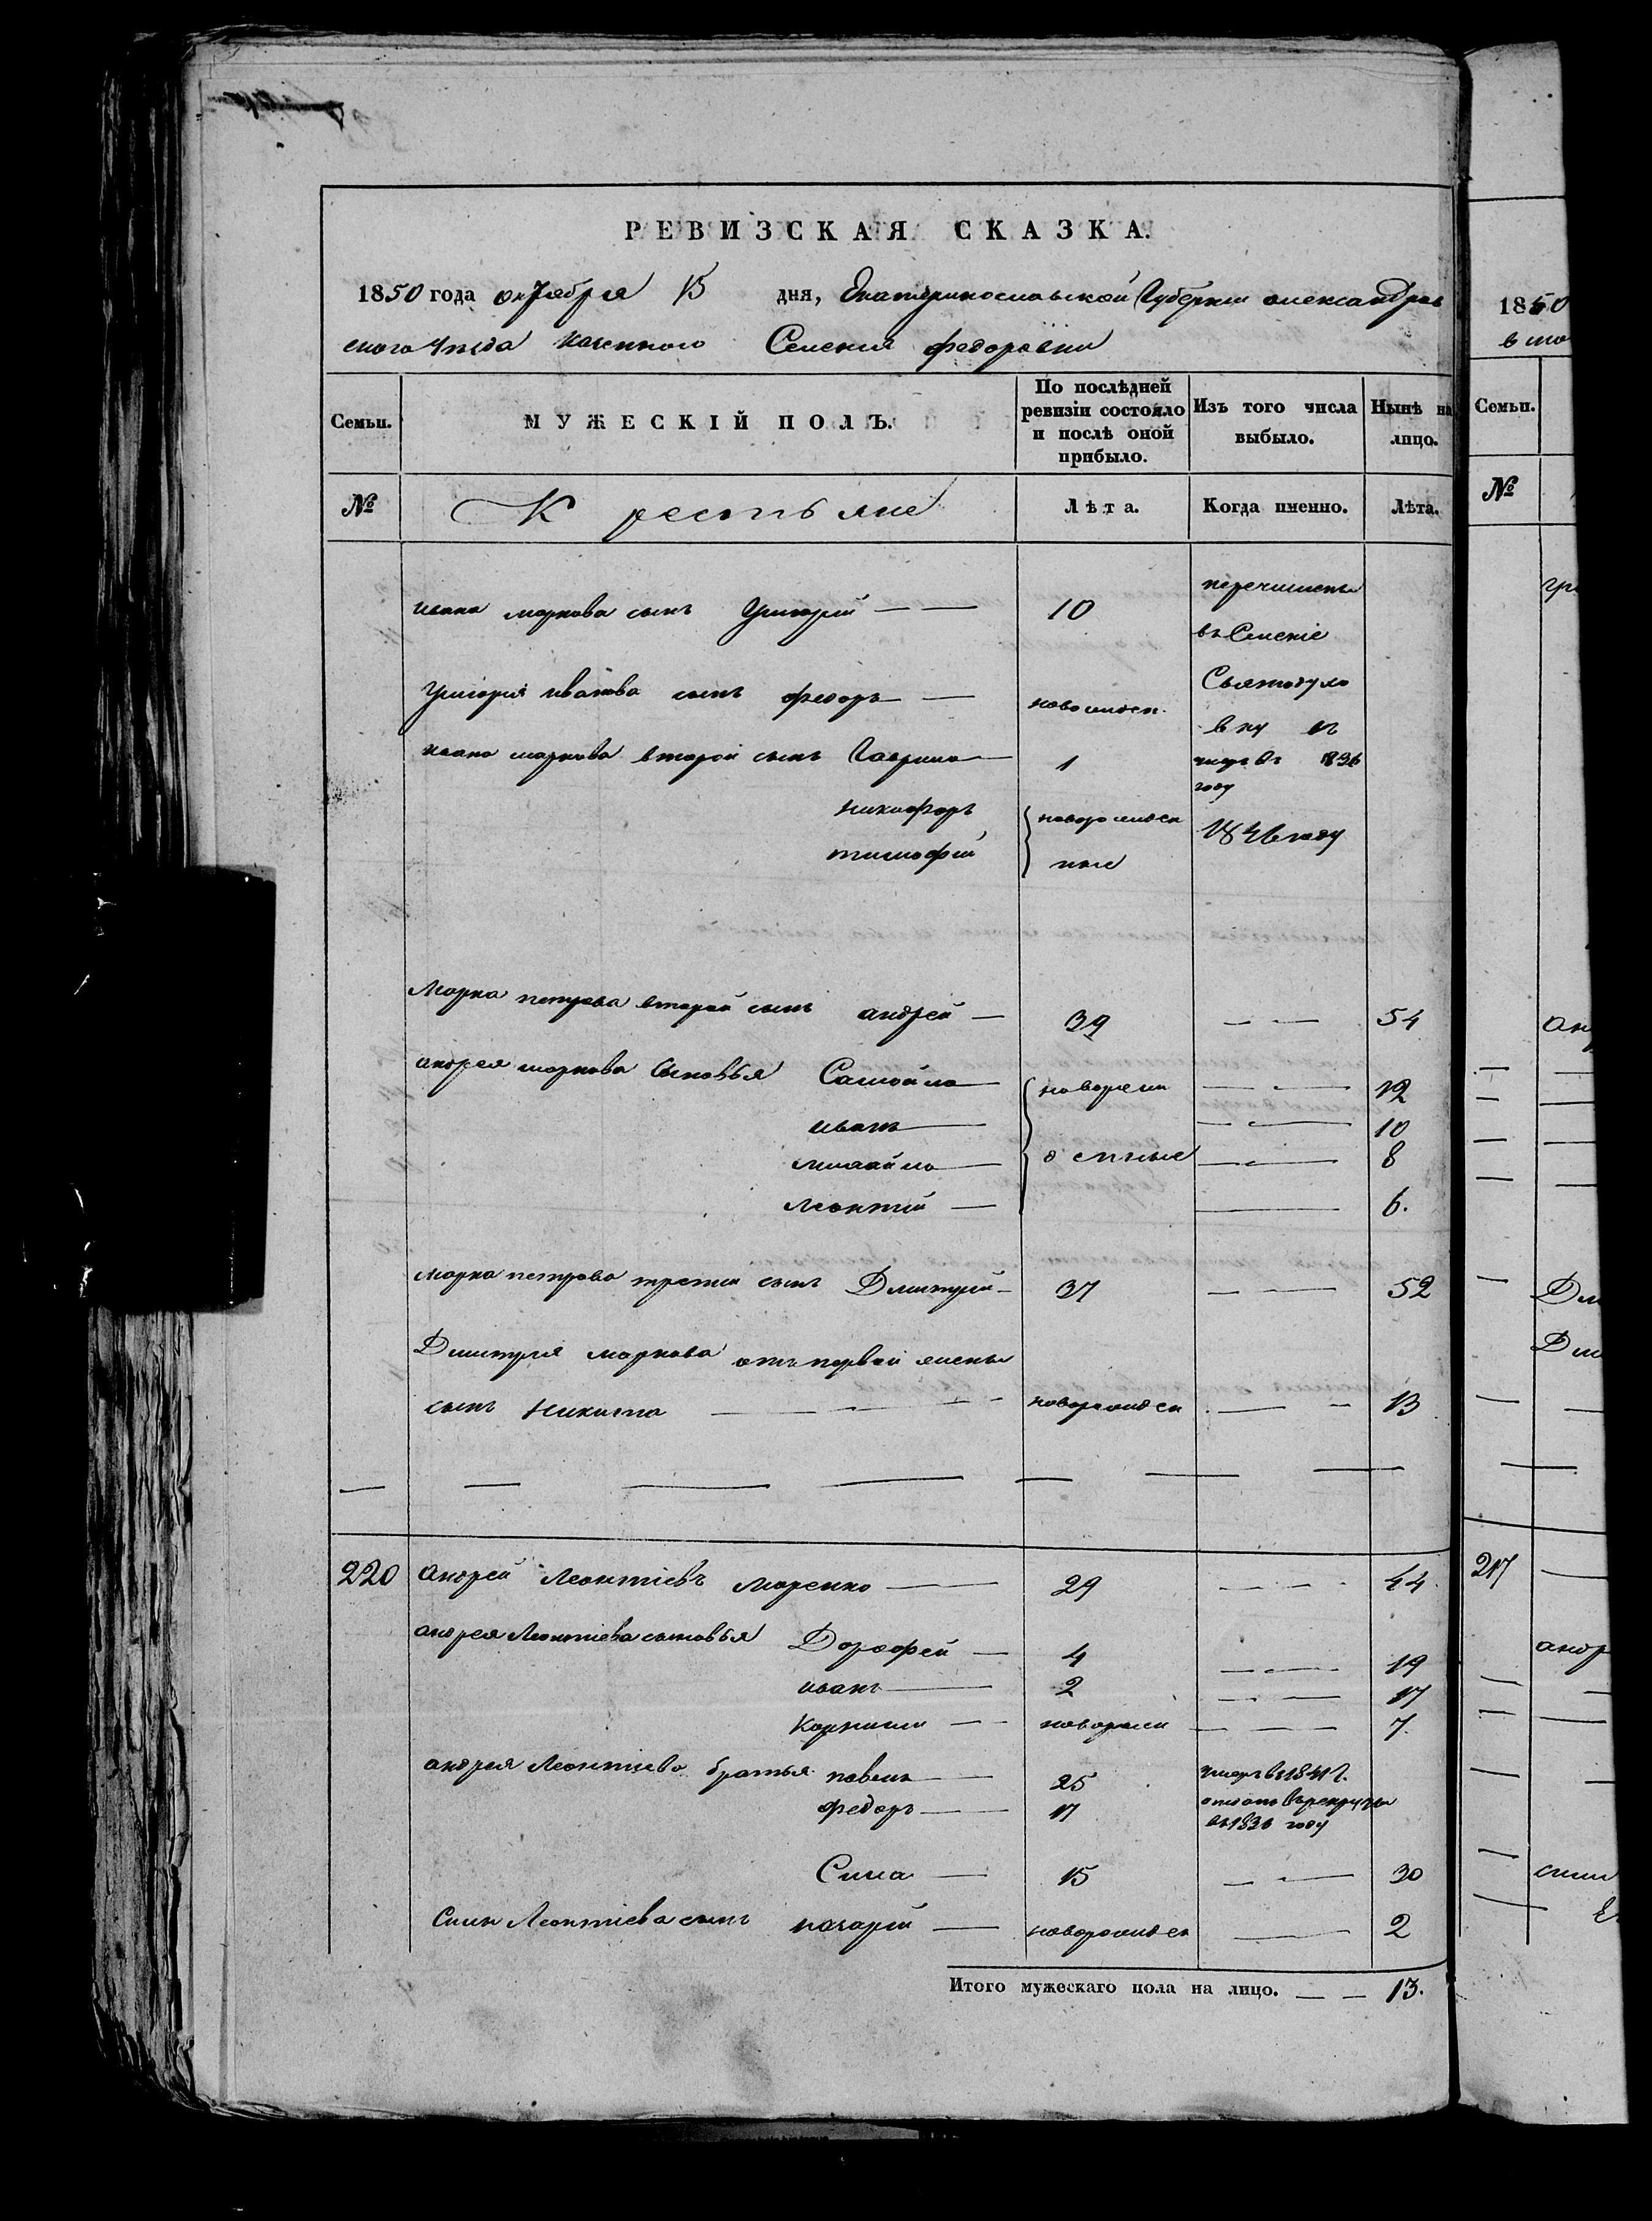 РЕВИЗСКАЯ СКАЗКА.
1850 года октября 13 дня, Екатеринославской Губернии александров
ского Уезда казенного Селения федоровки
Семьи.
МУЖЕСКІЙ ПОЛЪ.
По послѣдней ревизіи состояло и послѣ оной прибыло.
Изъ того числа выбыло.
Нынѣ на лицо.
№
Крестьяне
Лѣта.
Когда именно.
Лѣта.
ивана маркова сынъ Григорий 10 перечислены
въ Селеніе
Григория иванова сынъ федоръ новорожден.
ивана маркова второй сынъ Гаврило 1 умеръ въ 1836
году
никифоръ новорожден
тимофей ные 1846 году
Марка петрова второй сынъ андрей 39 54
андрея маркова Сыновья Самойло новорож 12
иванъ 10
михайло денные 8
леонтий 6.
марка петрова третий сынъ Дмитрий 37 52
Дмитрия маркова отъ первой жены
сынъ никита новорожден 13
220 андрей леонтіевъ маренко 29 44
андрея леонтіева сыновья Дорофей 4 19
иванъ 2 17
корнили новорож 7.
андрея леонтиева братья павелъ 25 умеръ въ 1841 г.
федоръ 17 отданъ въ рекруты
въ 1836 году
Сила 15 30
Силы Леонтіева сынъ назарий новорожден 2
Итого мужескаго пола на лицо. 13.
1850
Семьи.
№
217